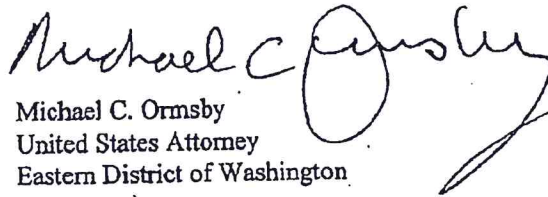 Michael C Ormsby
Michael C. Ormsby
United States Attorney
Eastern District of Washington